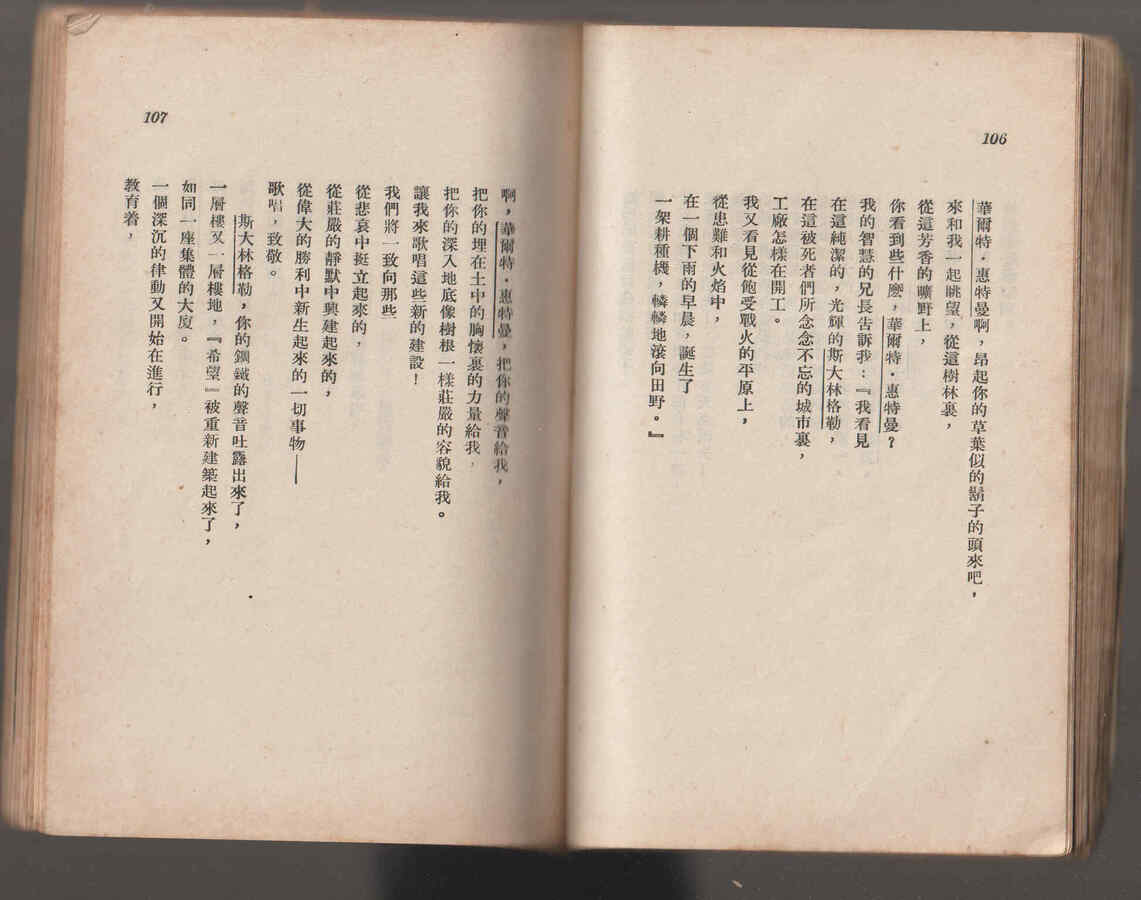 106
華爾特·惠特曼啊，昂起你的草葉似的鬍子的頭來吧，
來和我一起眺望，從這樹林裏，
從這芳香的曠野上，
你看到些什麽，華爾特·惠特曼？
我的智慧的兄長告訴我：『我看見
在這純潔的，光輝的斯大林格勒，
在這被死者們所念念不忘的城市裏，
工廠怎樣在開工。
我又看見從飽受戰火的平原上，
從患難和火焰中，
在一個下雨的早晨，誕生了
一架耕種機，轔轔地滾向田野。』
107
啊，華爾特·惠特曼，把你的聲音給我，
把你的埋在土中的胸懷裏的力量給我，
把你的深入地底像樹根一樣莊嚴的容貌給我。
讓我來歌唱這些新的建設！
我們將一致向那些
從悲哀中挺立起來的，
從莊嚴的靜默中興建起來的，
從偉大的勝利中新生起來的一切事物——
歌唱，致敬。
斯大林格勒，你的鋼鐵的聲音吐露出來了，
一層樓又一層樓地，『希望』被重新建築起來了，
如同一座集體的大廈。
一個深沉的律動又開始在進行，
教育着，